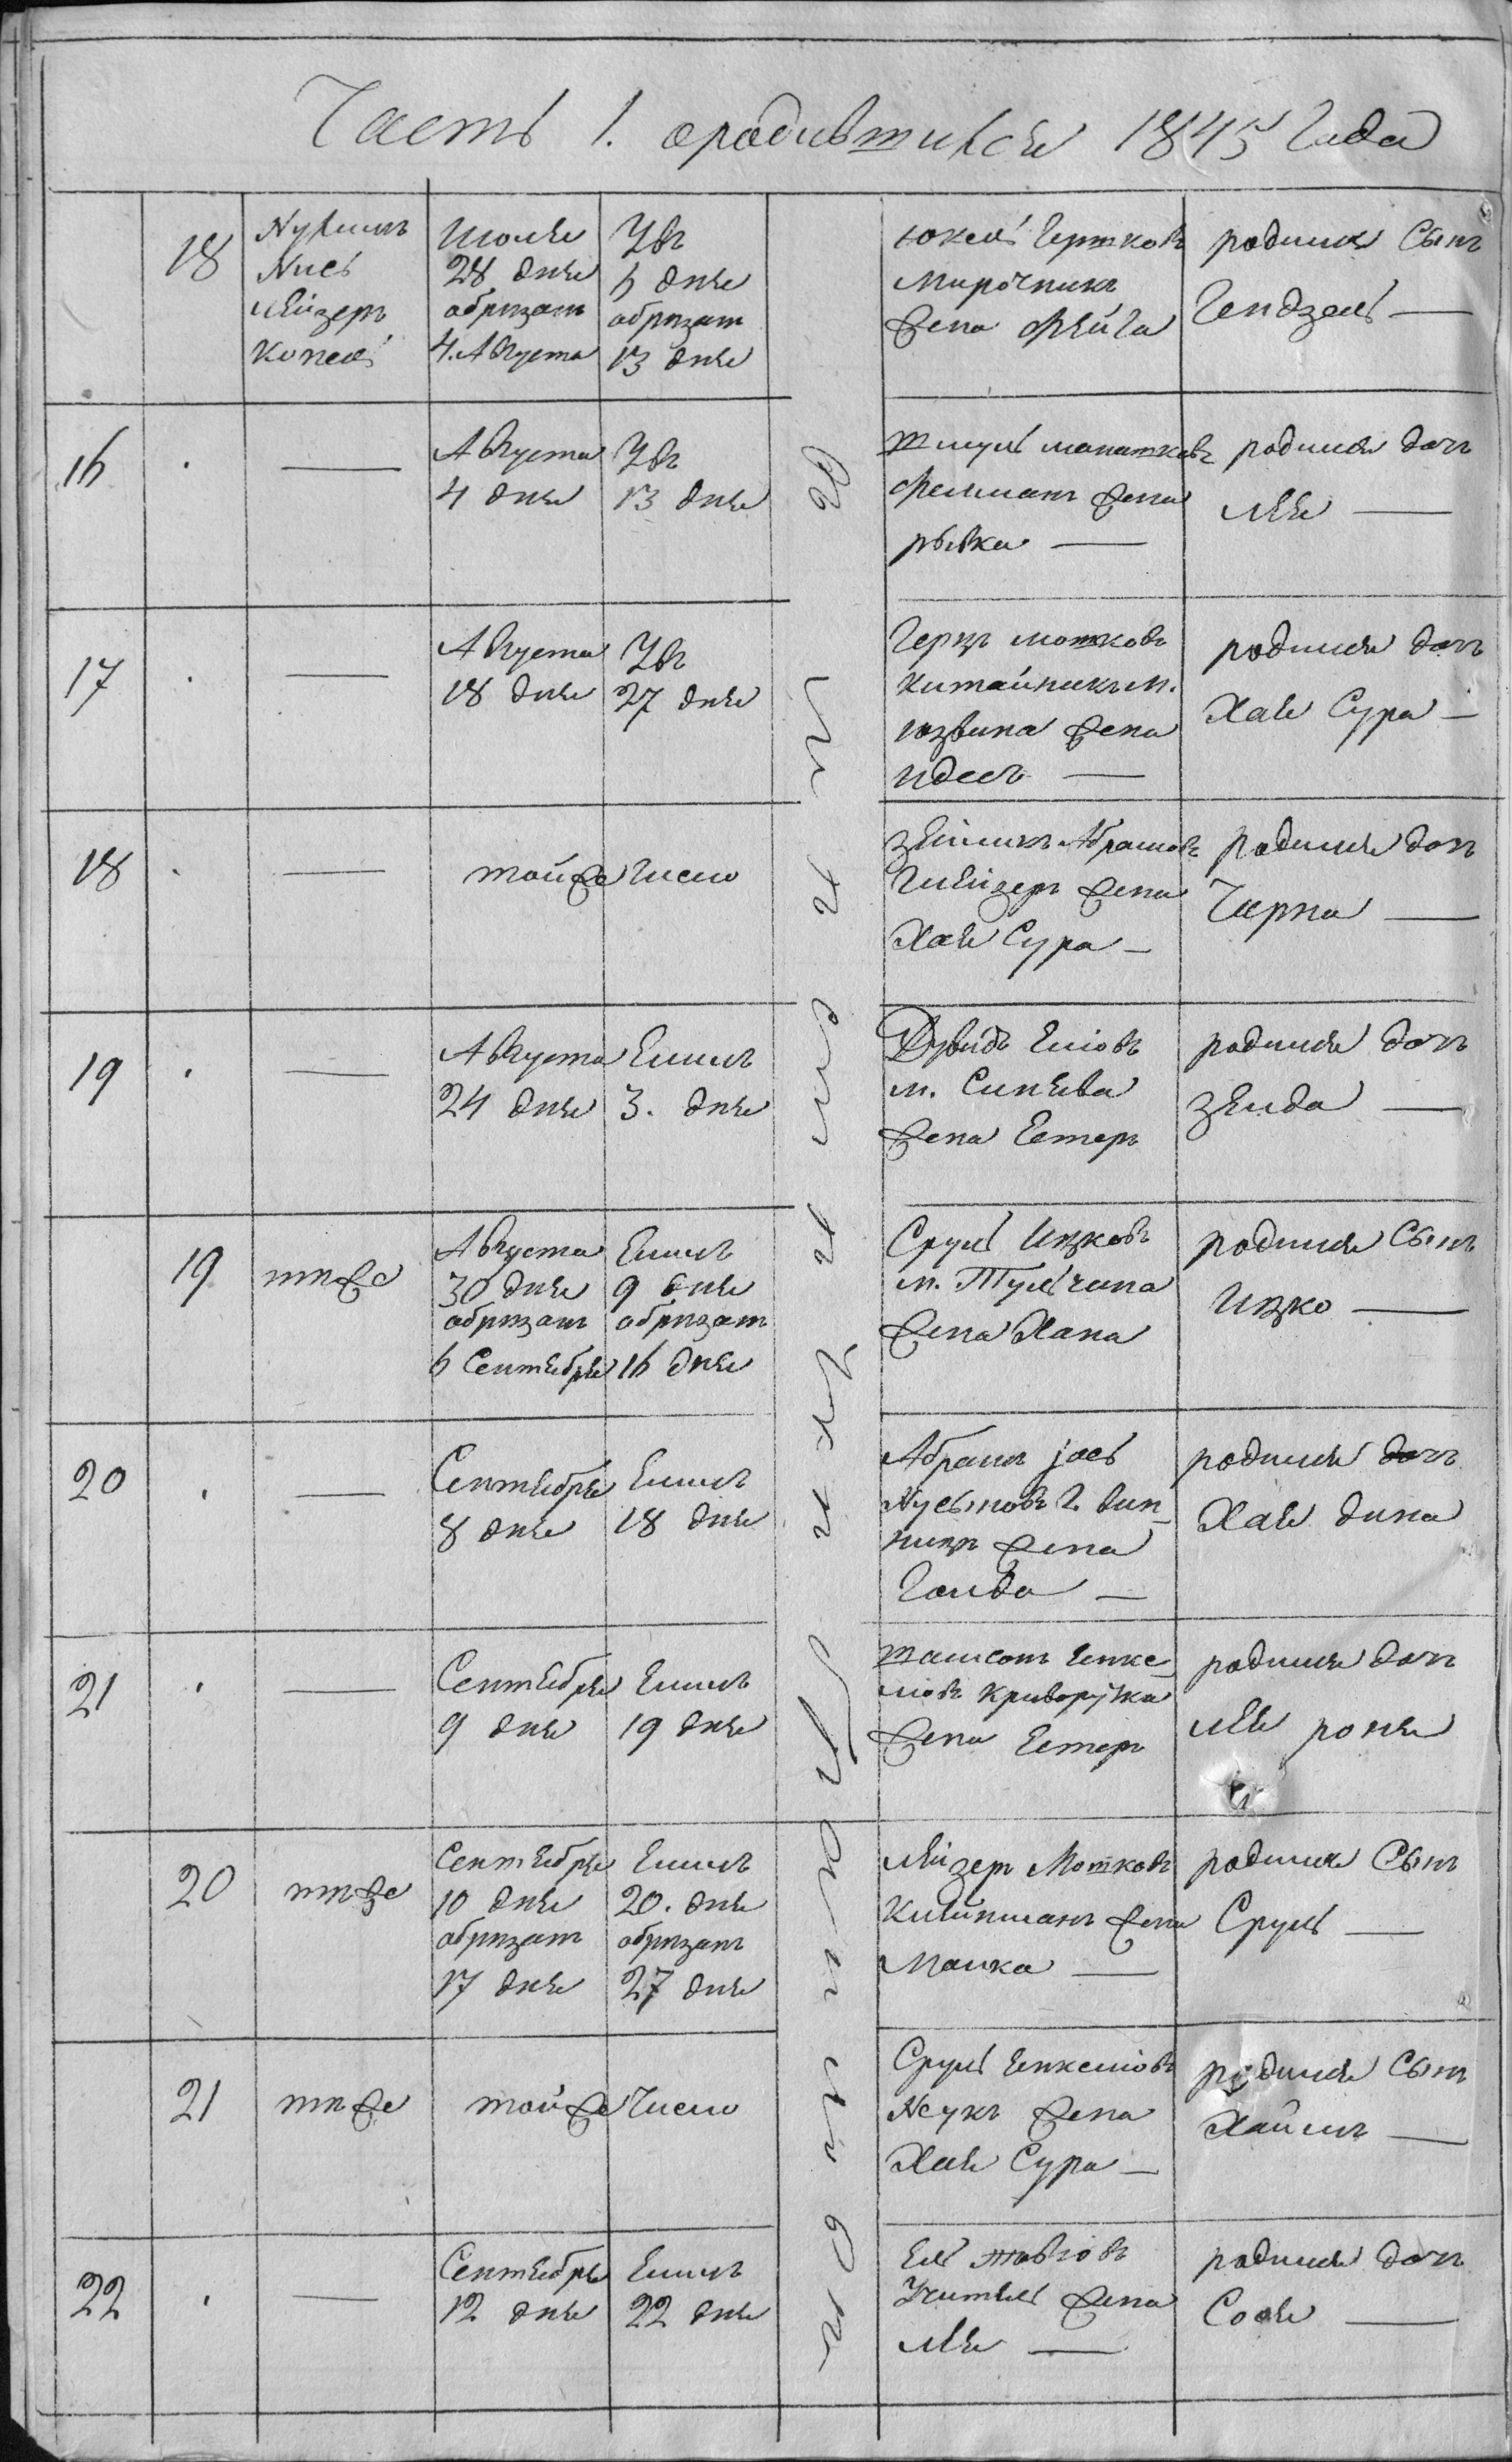 Часть 1. ородившихся 1845 Года
18
Нухимъ
Нись
Лейзеръ
Копель
Июля
28 дня
обрезан
4. Августа
Увъ
6 дня
обрезан
13 дня
Юкель Гершковъ
Мирочникъ
жена Фейга
родился Сынъ
Гендзель —
16 . —
Августа
4 дня
Увъ
13 дня
Шмуль
Фельманъ жена
рывка —
родилась дочь
Лея —
17 . —
Августа
18 дня
Увъ
27 дня
Герцъ Мошковъ
Китайникъ м.
юзвина жена
идесъ —
родилась дочь
Хая Сура —
18 . —
тойже Число
Зейликъ Абрамовъ
Глейзеръ жена
Хая Сура —
родилась дочь
Чарна —
19 . —
Августа
24 дня
Елилъ
3. дня
Дувидъ Еліовъ
м. Синява
жена Естеръ
родилась дочь
Зелда —
19 тпже
Августа
30 дня
обрезанъ
6 Сентября
Елилъ
9 дня
обрезанъ
16 дня
Сруль Ицковъ
м. Тульчина
жена Хана
родился Сынъ
Ицко —
20 . —
Сентября
8 дня
Елилъ
18 дня
Абрамъ Іось
Нусымовъ г. вин-
ницъ жена
Голда —
родилась дочь
Хая дина
21 . —
Сентября
9 дня
Елилъ
19 дня
Шамсонъ Янке-
ловъ Криворучка
жена Естеръ
родилась дочь
Лея роня
20 тпже
Сентября
10 дня
обрезанъ
17 дня
Елилъ
20. дня
обрезанъ
27 дня
Лейзеръ Мошковъ
Клейнманъ жена
Малка —
родился Сынъ
Сруль —
21 тпже
тойже Число
Сруль Янкеліовъ
жена
Хая Сура —
родился Сынъ
Хаимъ —
22 . —
Сентября
12 дня
Елилъ
22 дня
Ель
Учитель жена
Лея —
родилась дочь
Сося —